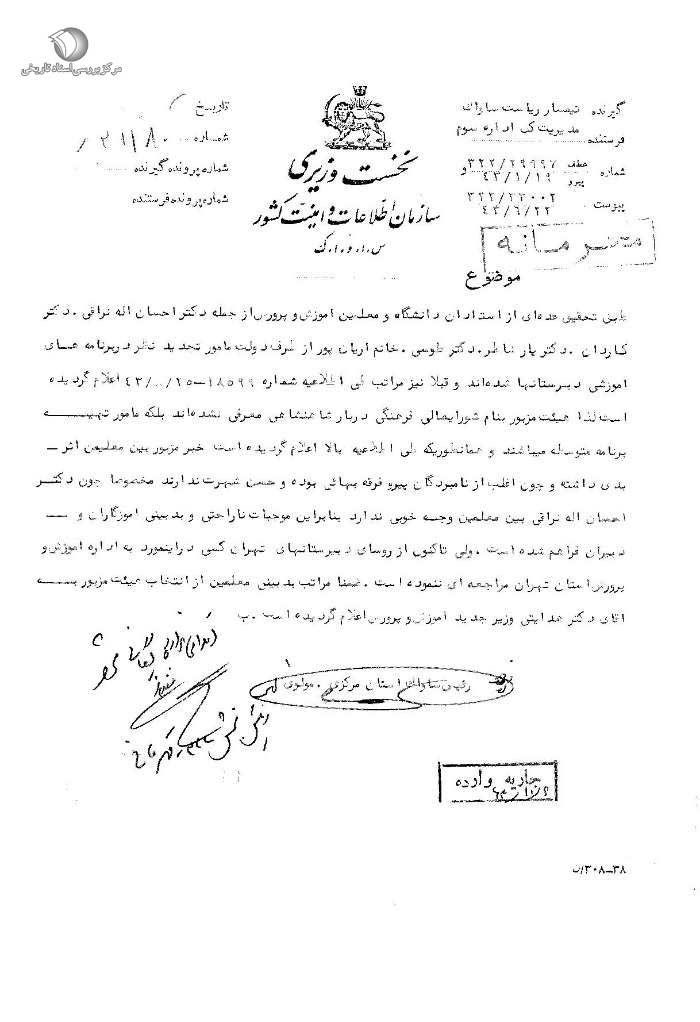 مرکز بررسی اسناد تاریخی
گیرنده تیمسار ریاست ساواک
مدیریت کل اداره سوم
فرستنده
شماره عطف ۳۲۲/۲۹۹۹۷
پیرو ۴۳/۱/۱۹ و
۳۲۲/۲۳۰۰۲
پیوست ۴۳/۶/۲۲
نخست وزیری
سازمان اطلاعات و امنیت کشور
س.ا.و.ا.ک
تاریخ
شماره
شماره پرونده گیرنده
شماره پرونده فرستنده
محرمانه
موضوع
طبق تحقیق عده‌ای از استادان دانشگاه و معلمین آموزش و پرورش از جمله دکتر احسان اله نراقی . دکتر
کاردان . دکتر یار شاطر . دکتر طوسی . خانم آریان پور از طرف دولت مامور تجدید نظر در برنامه های
آموزشی دبیرستانها شده‌اند و قبلا نیز مراتب طی اطلاعیه شماره ۱۸۵۹۹-۲۵/ /۴۳ اعلام گردیده
است لذا هیئت مزبور بنام شورایعالی فرهنگی دربار شاهنشاهی معرفی نشده‌اند بلکه مامور تهیه
برنامه متوسطه میباشند و همانطوریکه طی اطلاعیه بالا اعلام گردیده است خبر مزبور بین معلمین اثر
بدی داشته و چون اغلب از نامبردگان پیرو فرقه بهائی بوده و حسن شهرت ندارند مخصوصا چون دکتر
احسان اله نراقی بین معلمین وجهه خوبی ندارد بنابراین موجبات ناراحتی و بدبینی آموزگاران و
دبیران فراهم شده است . ولی تاکنون از روسای دبیرستانهای تهران کسی در اینمورد به اداره آموزش و
پرورش استان تهران مراجعه ای ننموده است . ضمنا مراتب بدبینی معلمین از انتخاب هیئت مزبور به
آقای دکتر هدایتی وزیر جدید آموزش و پرورش اعلام گردیده است . ب
رئیس ساواک استان مرکزی . مولوی
جاریه وارده
۳۰۸-۳۸/ت